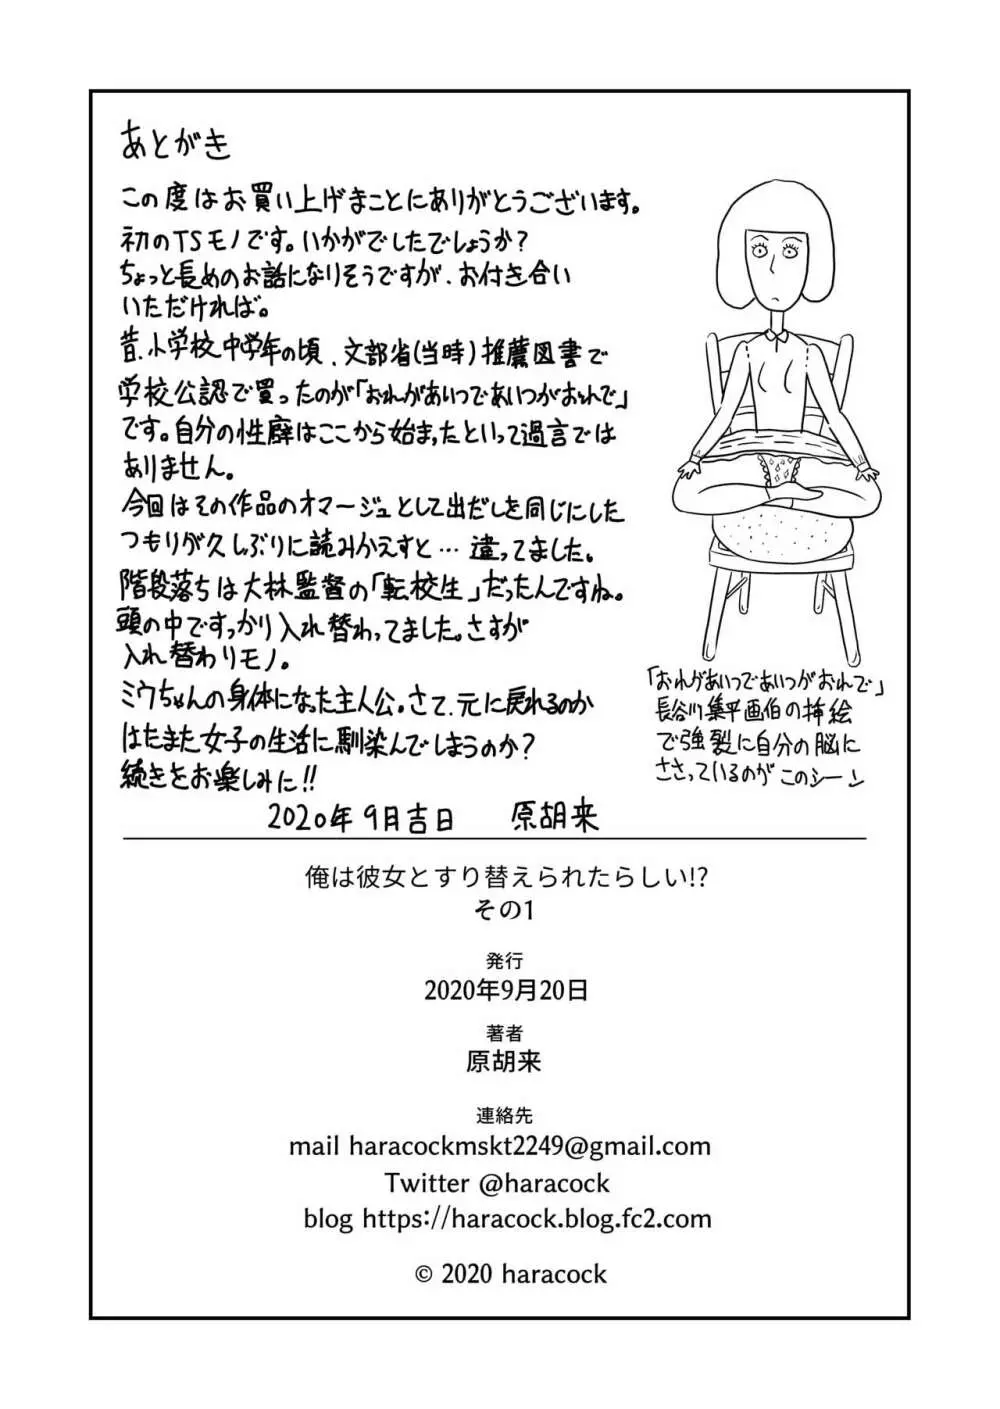 あとがき
この度はお買い上げまことにありがとうございます。
初のTSモノです。いかがでしたでしょうか?
ちょっと長めのお話になりそうですが、お付き合い
いただければ。
昔、小学校中学年の頃、文部省(当時)推薦図書で
学校公認で買ったのが「おれがあいつであいつがおれで」
です。自分の性癖はここから始まったといって過言では
ありません。
今回はその作品のオマージュとして出だしを同じにした
つもりが久しぶりに読みかえすと…違ってました。
階段落ちは大林監督の「転校生」だったんですね。
頭の中ですっかり入れ替わってました。さすが
入れ替わりモノ。
ミウちゃんの身体になった主人公。さて、元に戻れるのか
はたまた女子の生活に馴染んでしまうのか?
続きをお楽しみに!!
2020年9月吉日 原胡来
「おれがあいつであいつがおれで」
長谷川集平画伯の挿絵
で強裂に自分の脳に
ささっているのがこのシーン
俺は彼女とすり替えられたらしい!?
その1
発行
2020年9月20日
著者
原胡来
連絡先
mail haracockmskt2249@gmail.com
Twitter @haracock
blog https://haracock.blog.fc2.com
© 2020 haracock